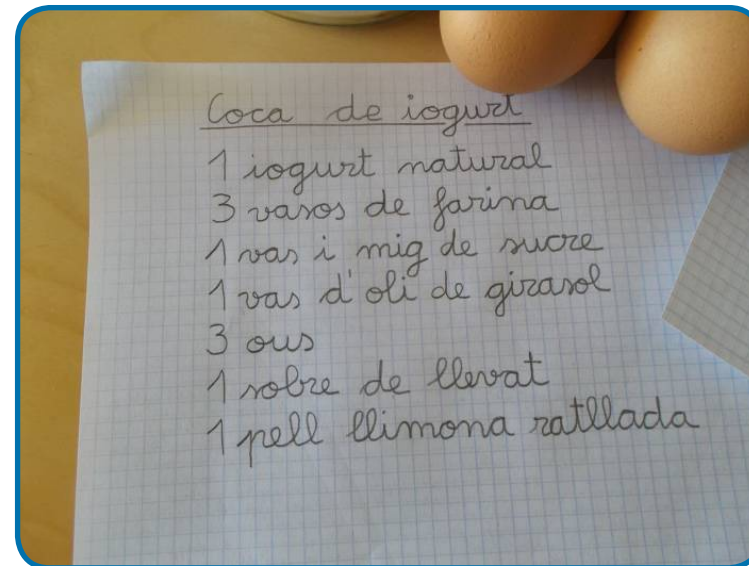 Coca de iogurt
1 iogurt natural
3 vasos de farina
1 vas i mig de sucre
1 vas d'oli de girasol
3 ous
1 sobre de llevat
1 pell llimona ratllada